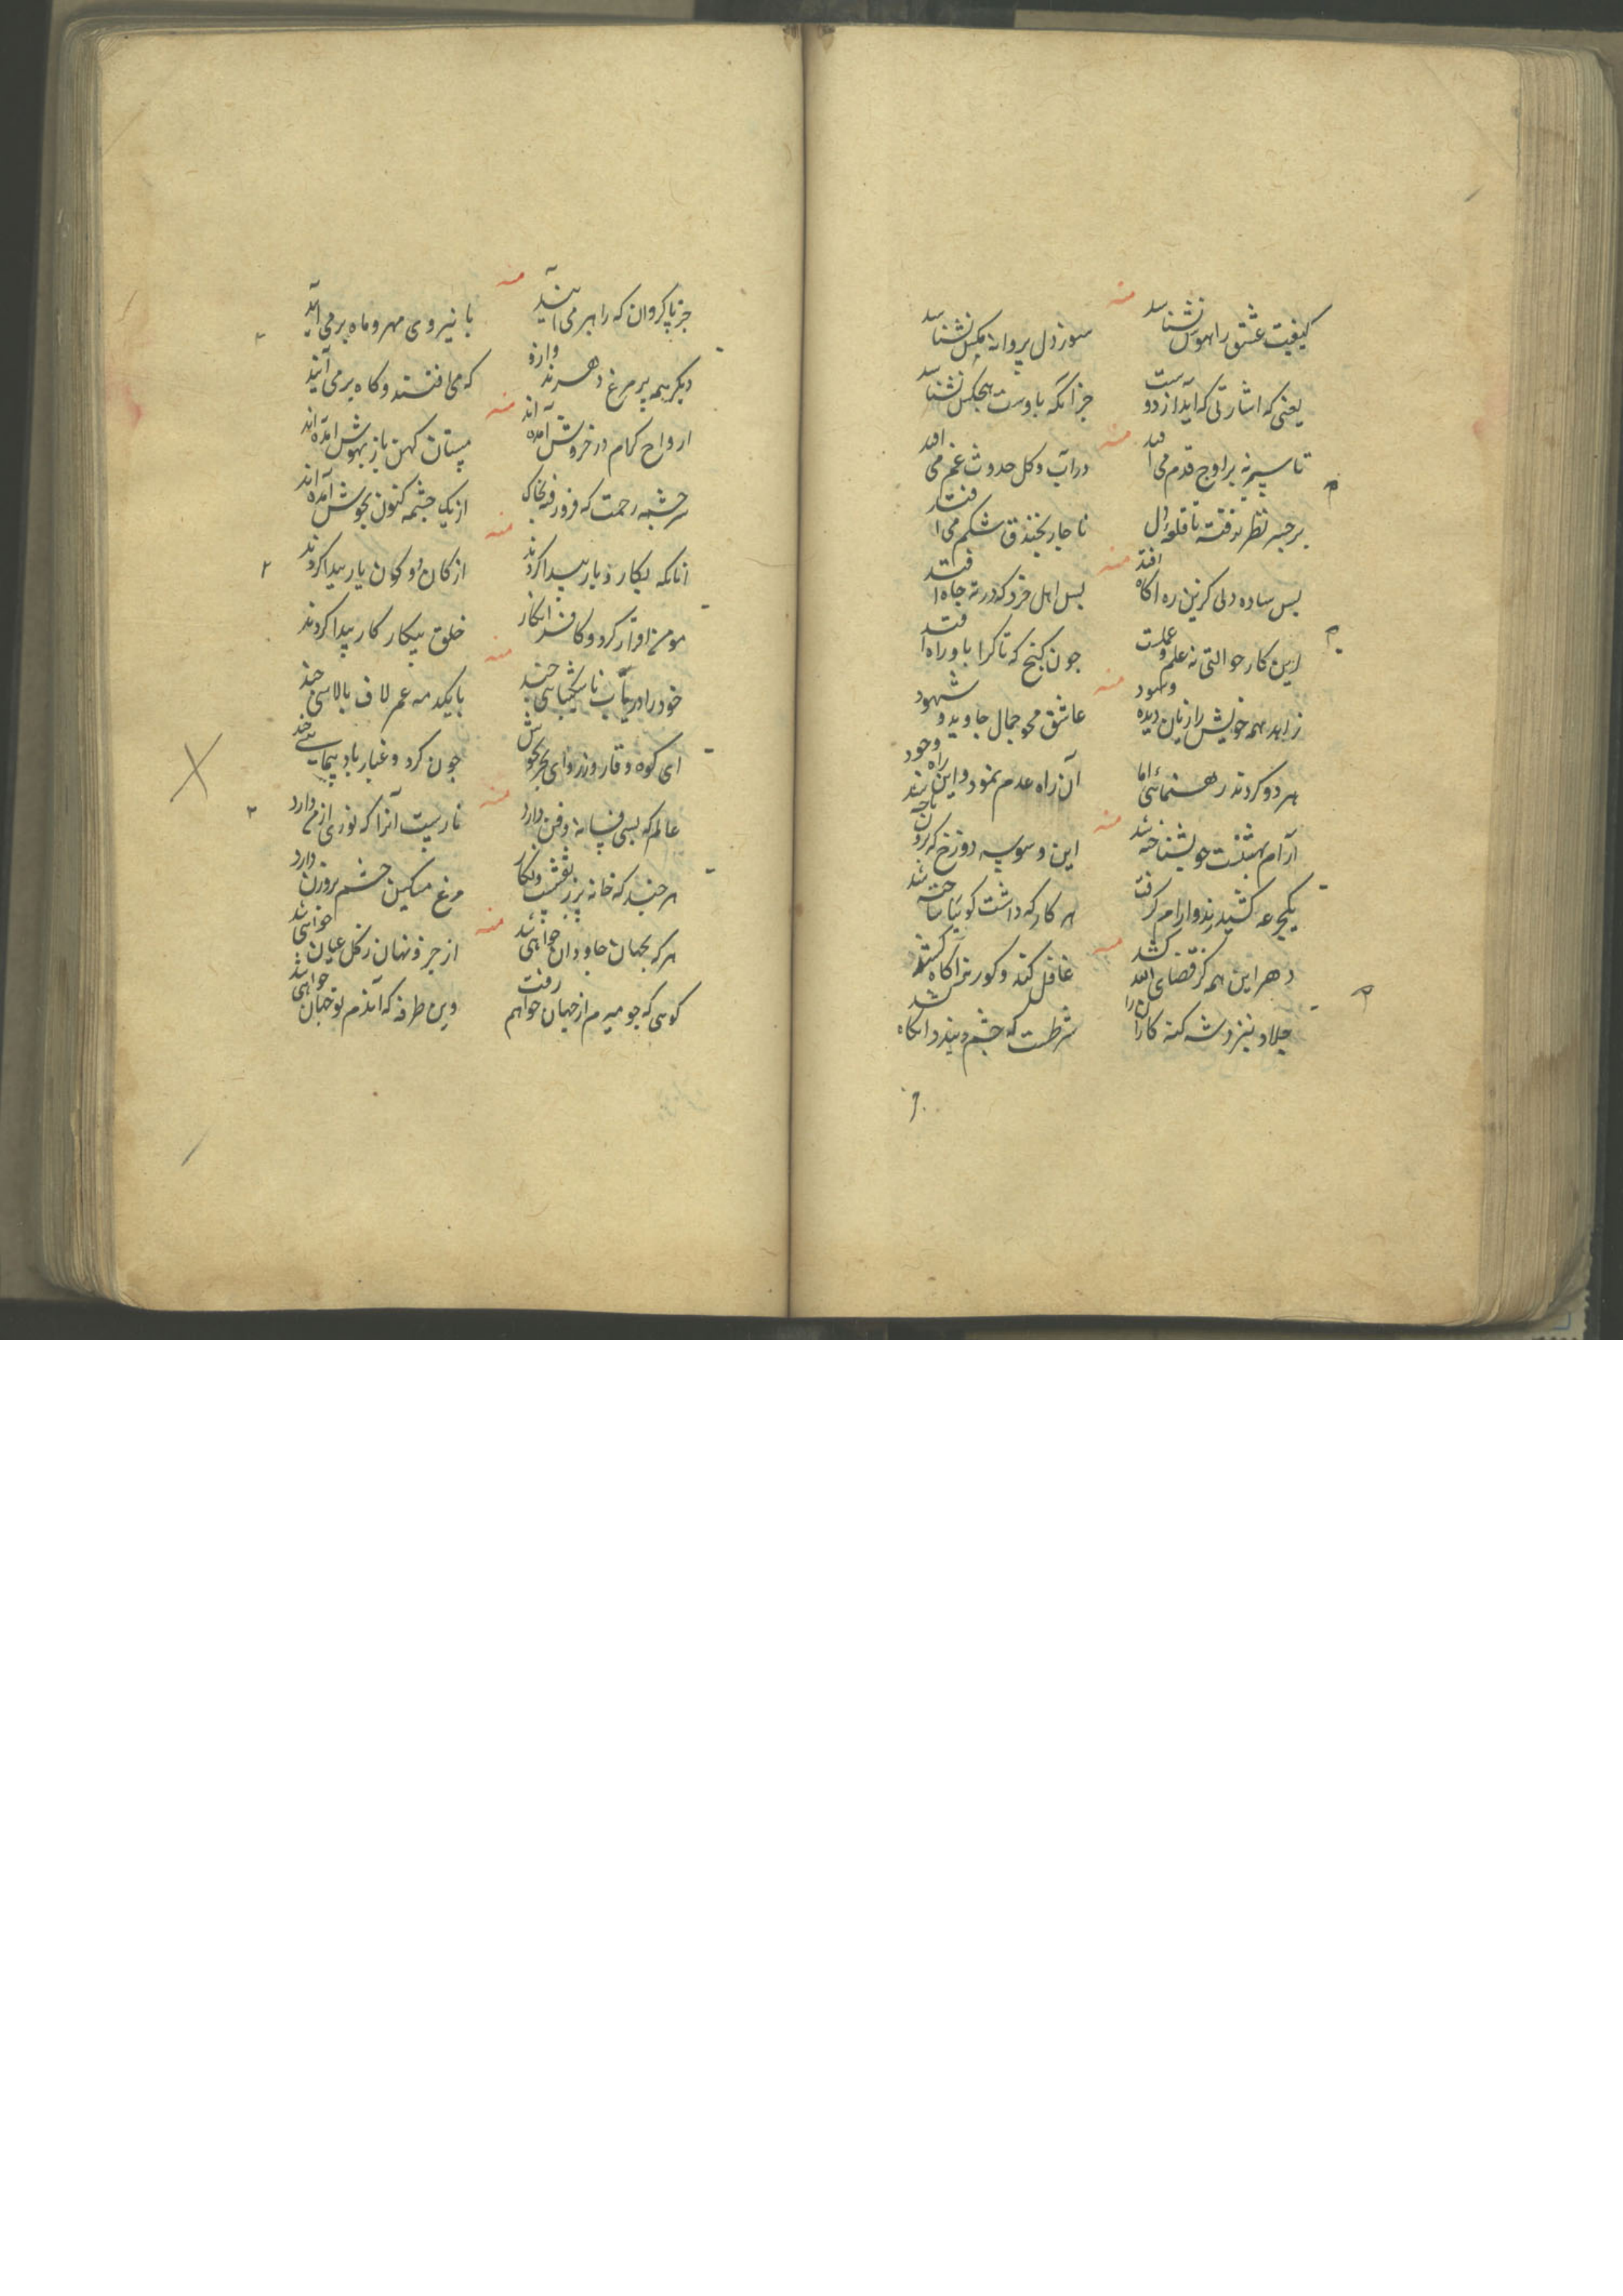 منه
کیفیت عشق را هوس نشناسد
سوز دل پروانه مکس نشناسد
یعنی که اشارتی که آید از دوست
جز آنکه باوست هیچکس نشناسد
منه
تا سپرنه بر اوج قدم می افتد
در آب و کل حدوث غم می افتد
بر جبر نظر نرفته تا قلعه دل
ناچار بخندق شکم می افتد
منه
بس ساده دلی کزین ره اکاه افتد
بس اهل خرد که در ته چاه افتد
این کار حوالتی نه علم و عملست
چون کنج که تا کرا باو راه افتد
منه
زاهد همه خویش را زیان دیده و سود
عاشق محو جمال جاوید و شهود
هر دو کردند رهنمائی اما
آن راه عدم نمود و این راه وجود
منه
آرام بهشت چو بشناخته اند
این وسوسه دوزخ که
یکجرعه کشید رند و آرام کرفت
هر کار که داشت کوئیا ساخته اند
منه
دهر این همه کز قضای الله کشد
غافل کند و کور نه آکاه کشد
جلاد نیز دشنه کنه کاران را
شرطست که چشم بندد آنکاه کشد
منه
جز پاکروان که راهبر می آیند
با نیروی مهر و ماه بر می آیند
دیکر همه پر مرغ دهرند وازو
که می افتند و کاه بر می آیند
منه
ارواح کرام در خروش آمده اند
مستان کهن باز بهوش آمده اند
سرچشمه رحمت که فرو رفته بخاک
از یک چشمه کنون بجوش آمده اند
منه
آنانکه بکار و بار پیدا کردند
از کان دو کون یار پیدا کردند
مومن اقرار کرد و کافر انکار
خلق بیکار کار پیدا کردند
منه
خود را دریاب ناشکیبائی چند
با یکدمه عمر لاف بالائی چند
ای کوه وقار و زر وای بحر بجوش
چون کرد و غبار باد پیمائی چند
منه
عالم که بسی فسانه و فن دارد
ناریست آنرا که نوری از من دارد
هر چند که خانه پر ز نقشست و نکار
مرغ مسکین چشم بروزن دارد
منه
هر که بجهان جاودان خواهی شد
از جزو نهان ز کل عیان خواهی شد
کوئی که چو میرم از جهان خواهم رفت
وین طرفه که آندم تو جهان خواهی شد